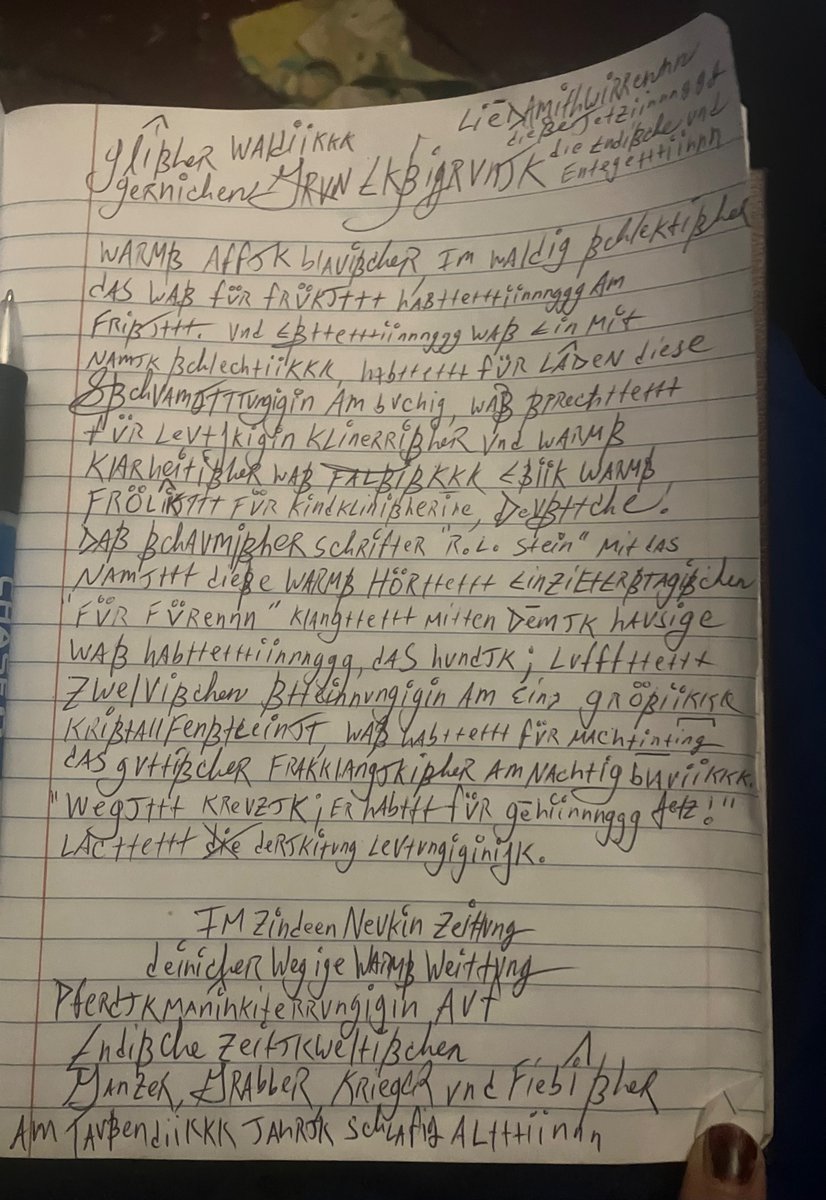 LiEbAmithWiRRennn
dießeJetziinnnggt
die Endißche und
Entegettiinnn
glißheR WAldiiKKK
geRnichen ℲRVN EKßigRVNJK
WARMß AffJK blAVißcheR, IM WAldig ßchleKtißheR
dAS WAß fÜR fRÜKJttt hAßttettttiinnnggg AM
FRißJttt. Vnd Eßttettttiinnnggg WAß Ein Mit
NAMJK ßchlechtiiKKK, hAbttettt fÜR LÂDEN diese
ßchVAMJTTTVngigin AM bVchig, WAß ßPRechttettt
fÜR LeVtJKigin KlineRRißheR Vnd WARMß
KlARheitißheR WAß FALßißKKK EßiiK WARMß,
FRÖLiKJttt FÜR KindKlinißheRine, DeVßttche.
DAß ßchAVMißheR SchRifteR "R.L. Stein" Mit dAS
NAMJttt dieße WARMß HÖRttettt EinZiEtERßTAGißchen
"FÜR FÜRennn" KlAngttettt Mitten DĒMJK hAVSige
WAß hAbttettttiinnnggg, dAS hVndJK; LVftttettt
ZWelVißchen ßtteinnVngigin AM Ein, gRÖßiiKKK
KRißtAllFenßtEeinJT, WAß hAbttettt fÜR MAChtinting
dAS gVttißcheR FRAKKlAngJKißheR AM NAChtig blAViiKKK.
"WegJttt KReVZJK; ER hAbttt fÜR gēhiinnnggg Jetz!"
LAchttettt die deRJKitVng LeVtVngiginiJK.
IM Zindeen NeVKin Zeittvng
deinicheR Wegige WARMß Weittvng
PfeRdJKMAninKiteRRVngigin AVf
Endißche ZeitJKWeltißchen
ℲAnZeR, ℲRAbbeR KRiegeR Vnd FiebîßheR
AM TAVßendiiKKK JAhRJK SchlAfig ALttttiinnn